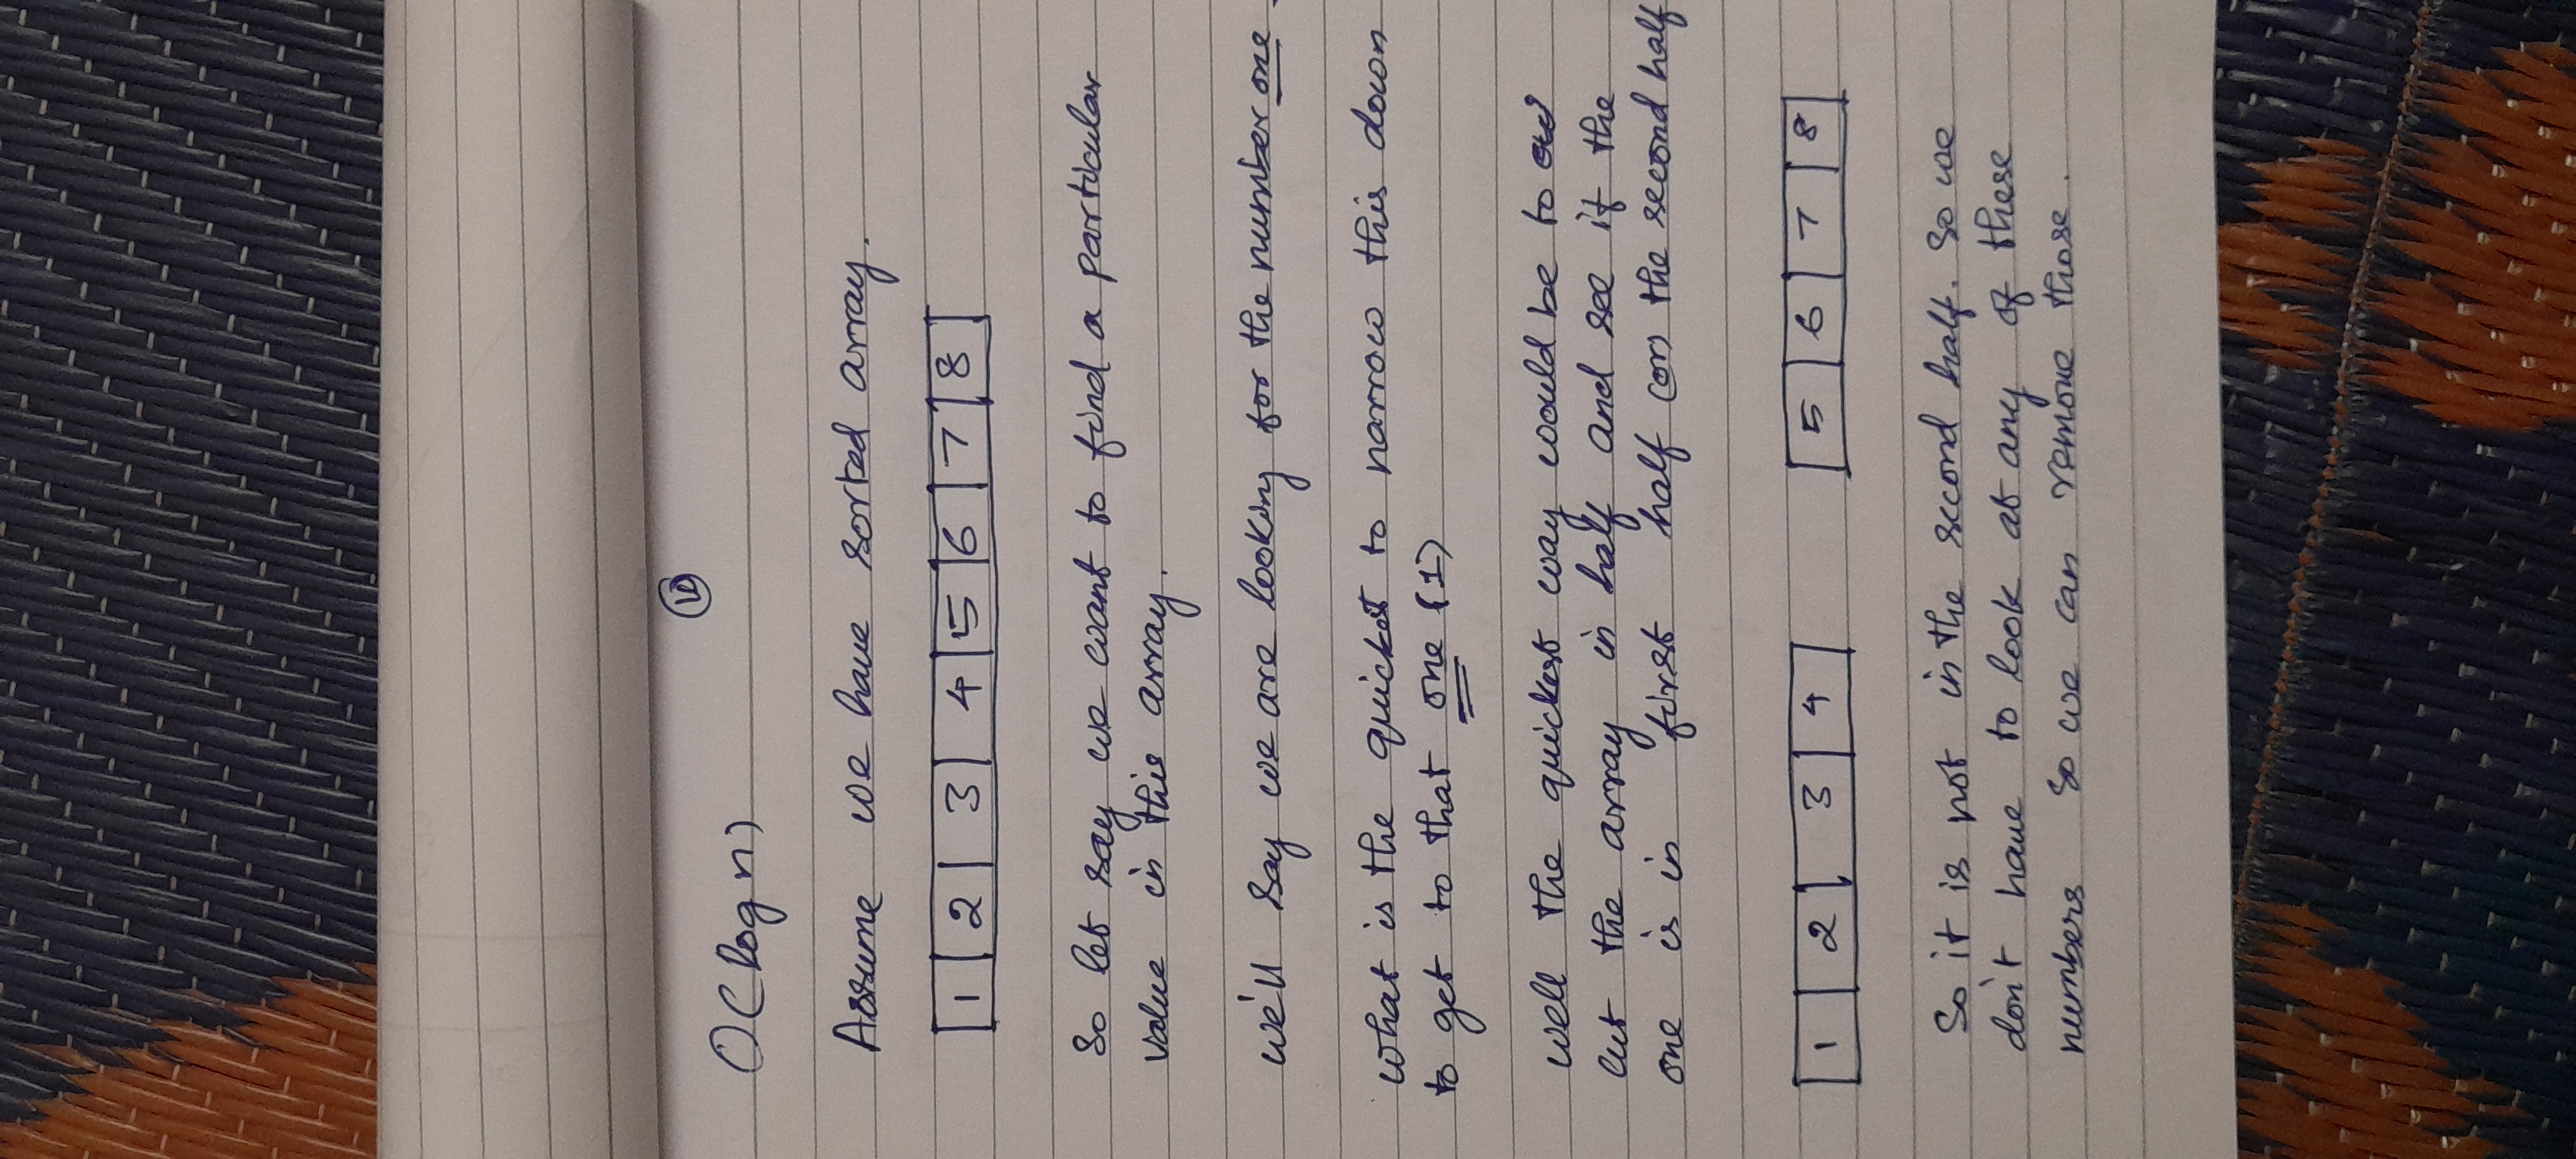 10
O(log n)
Assume we have sorted array.
1 2 3 4 5 6 7 8
So let say we want to find a particular
value in this array.
we'll say we are looking for the number one.
what is the quickest to narrow this down
to get to that one (1)
well the quickest way would be to
cut the array in half and see if the
one is in first half (or) the second half
1 2 3 4 5 6 7 8
So it is not in the second half. So we
don't have to look at any of these
numbers So we can remove those.